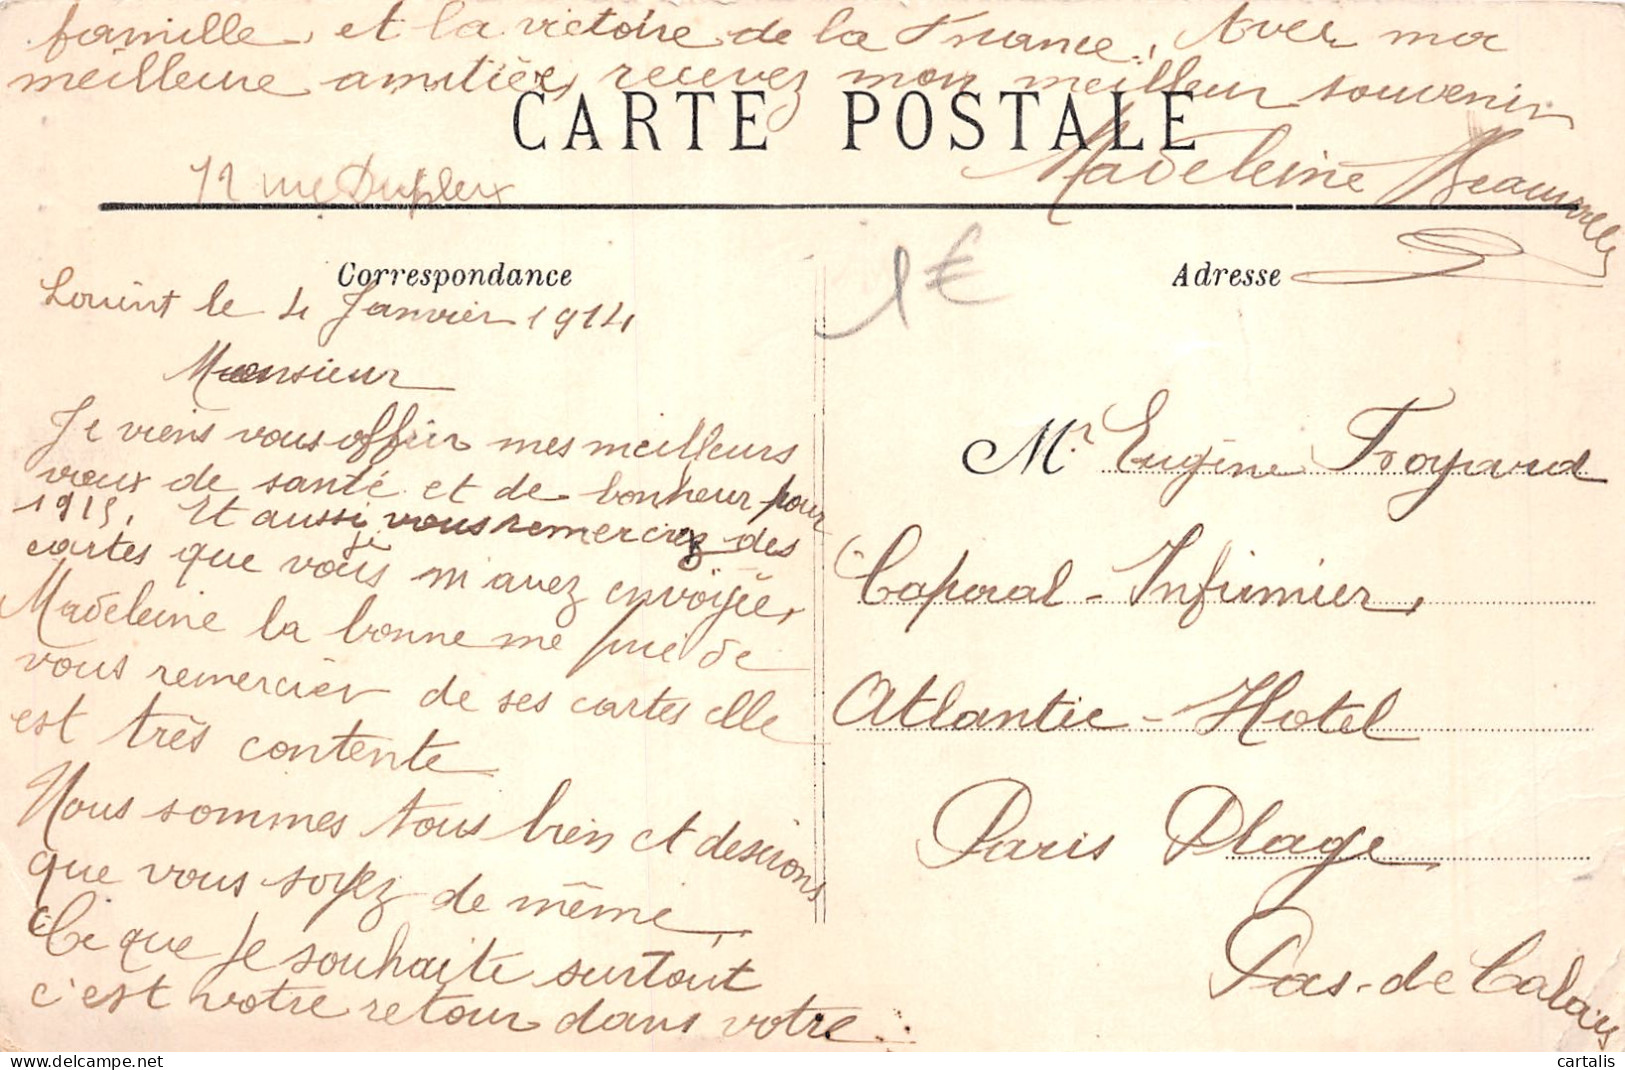 famille, et la victoire de la France. Avec ma
meilleure amitiée, recevez mon meilleur souvenir
CARTE POSTALE
Madeleine
72 rue Dupleix
Correspondance
Lorient le 4 Janvier 1914
Monsieur
Je viens vous offrir mes meilleurs
vœux de santé et de bonheur pour
1915. Et aussi vous remerciez des
cartes que vous m'avez envoyée,
Madeleine la bonne me prie de
vous remercier de ses cartes elle
est très contente
Nous sommes tous bien et desirons
que vous soyez de même,
Ce que je souhaite surtout
c'est votre retour dans votre
1€
Adresse
Mr Eugène Froyard
Caporal-Infirmier,
Atlantic-Hotel
Paris Plage
Pas-de Calais
cartalis